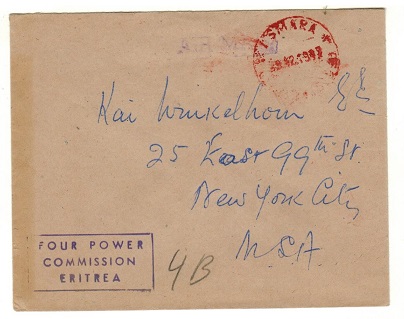 AIR MAIL
ASMARA
12.1947
Kai Winkelhorn
25 East 99th St.
New York City
U.S.A.
FOUR POWER
COMMISSION
ERITREA
4B